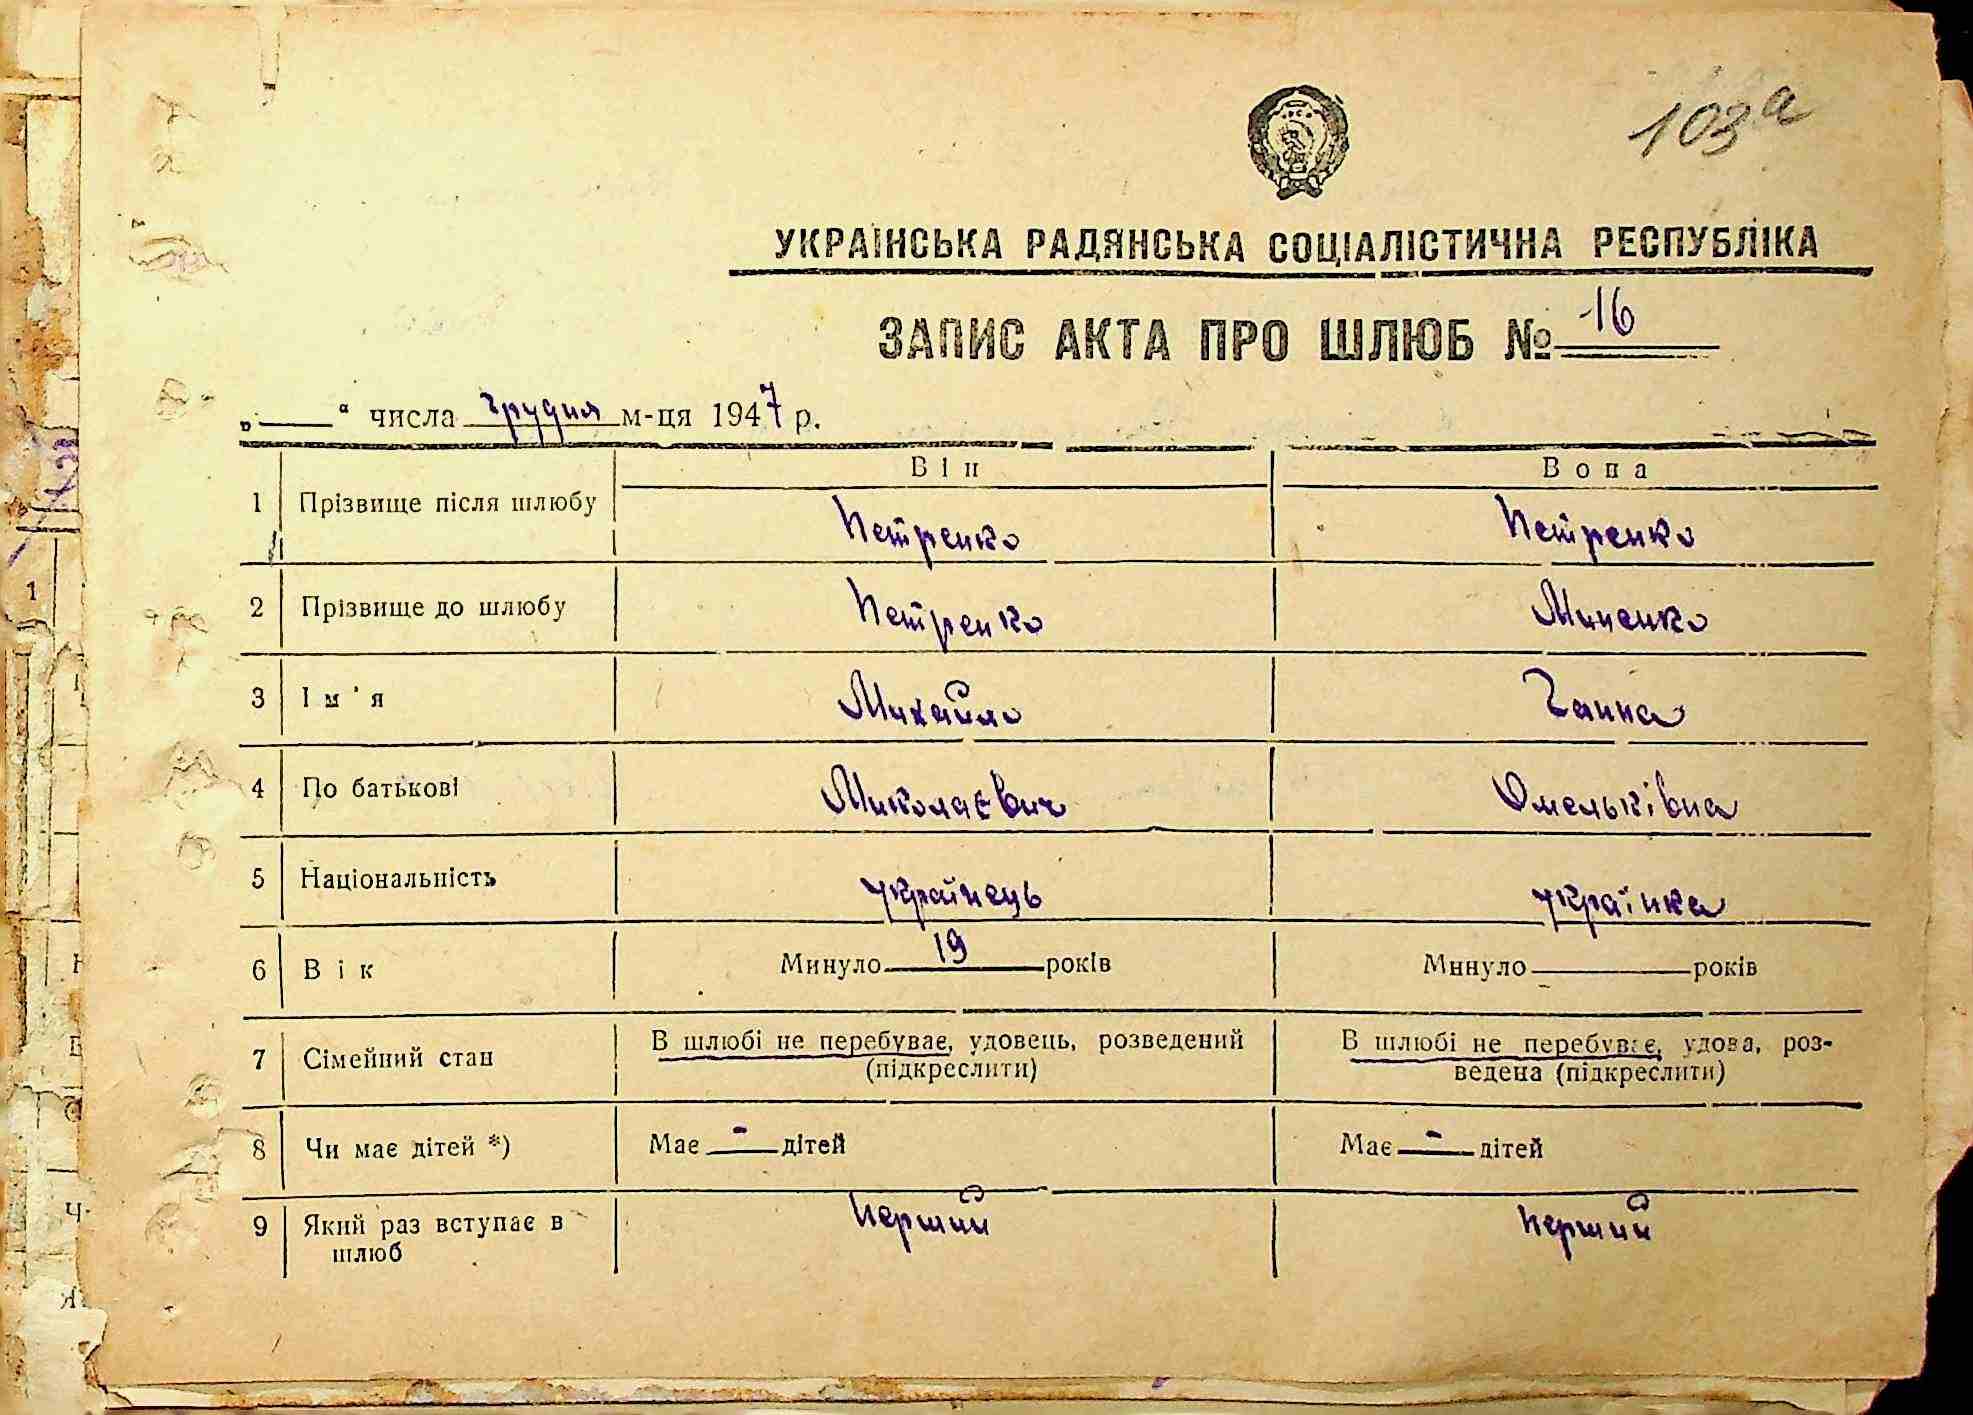 103а
УКРАЇНСЬКА РАДЯНСЬКА СОЦІАЛІСТИЧНА РЕСПУБЛІКА
ЗАПИС АКТА ПРО ШЛЮБ № 16
„ “ числа грудня м-ця 1947 р.
Він Вона
1 Прізвище після шлюбу Петренко Петренко
2 Прізвище до шлюбу Петренко Миненко
3 Ім'я Михайло Ганна
4 По батькові Миколаєвич Омельківна
5 Національність українець українка
6 Вік Минуло 19 років Минуло років
7 Сімейний стан В шлюбі не перебуває, удовець, розведений (підкреслити) В шлюбі не перебуває, удова, роз-
ведена (підкреслити)
8 Чи має дітей *) Має - дітей Має - дітей
9 Який раз вступає в шлюб перший перший